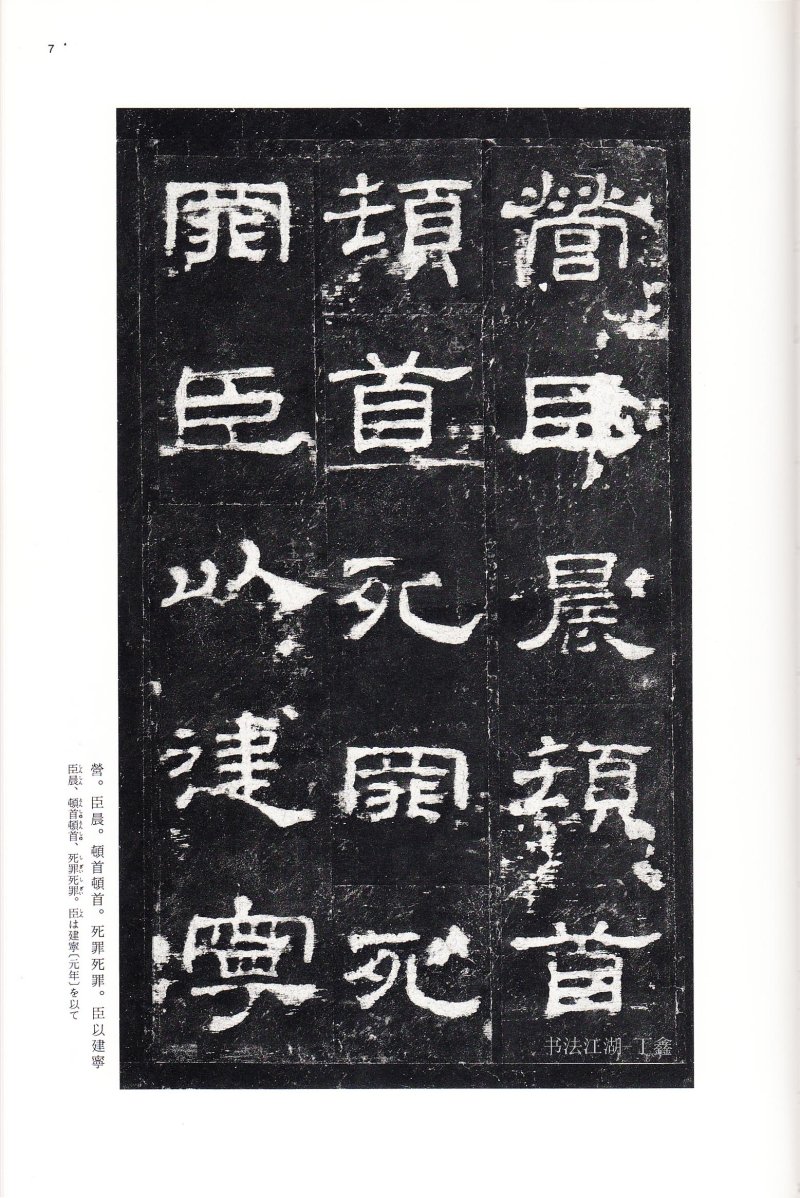 7
營臣晨頓首
頓首死罪死
罪臣以建寧
书法江湖 丁鑫
營。臣晨。頓首頓首。死罪死罪。臣以建寧
臣晨、頓首頓首、死罪死罪。臣は建寧〔元年〕を以て